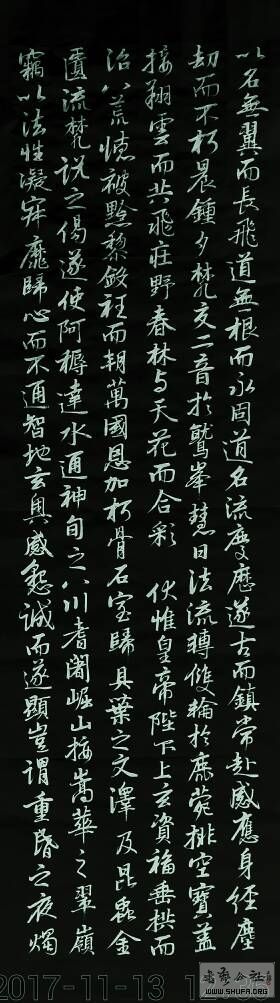 以名無翼而長飛道無根而永固道名流慶歷遂古而鎮常赴感應身經塵
劫而不朽晨鍾夕梵交二音於鷲峯慧日法流轉雙輪於鹿苑排空寶蓋
接翔雲而共飛莊野春林与天花而合彩 伏惟皇帝陛下上玄資福垂拱而
治八荒德被黔黎斂衽而朝萬國恩加朽骨石室歸貝葉之文澤及昆蟲金
匱流梵說之偈遂使阿耨達水通神甸之八川耆闍崛山接嵩華之翠嶺
竊以法性凝寂靡歸心而不通智地玄奧感懇誠而遂顯豈謂重昏之夜燭
2017-11-13
書法公社
WWW.SHUFA.ORG